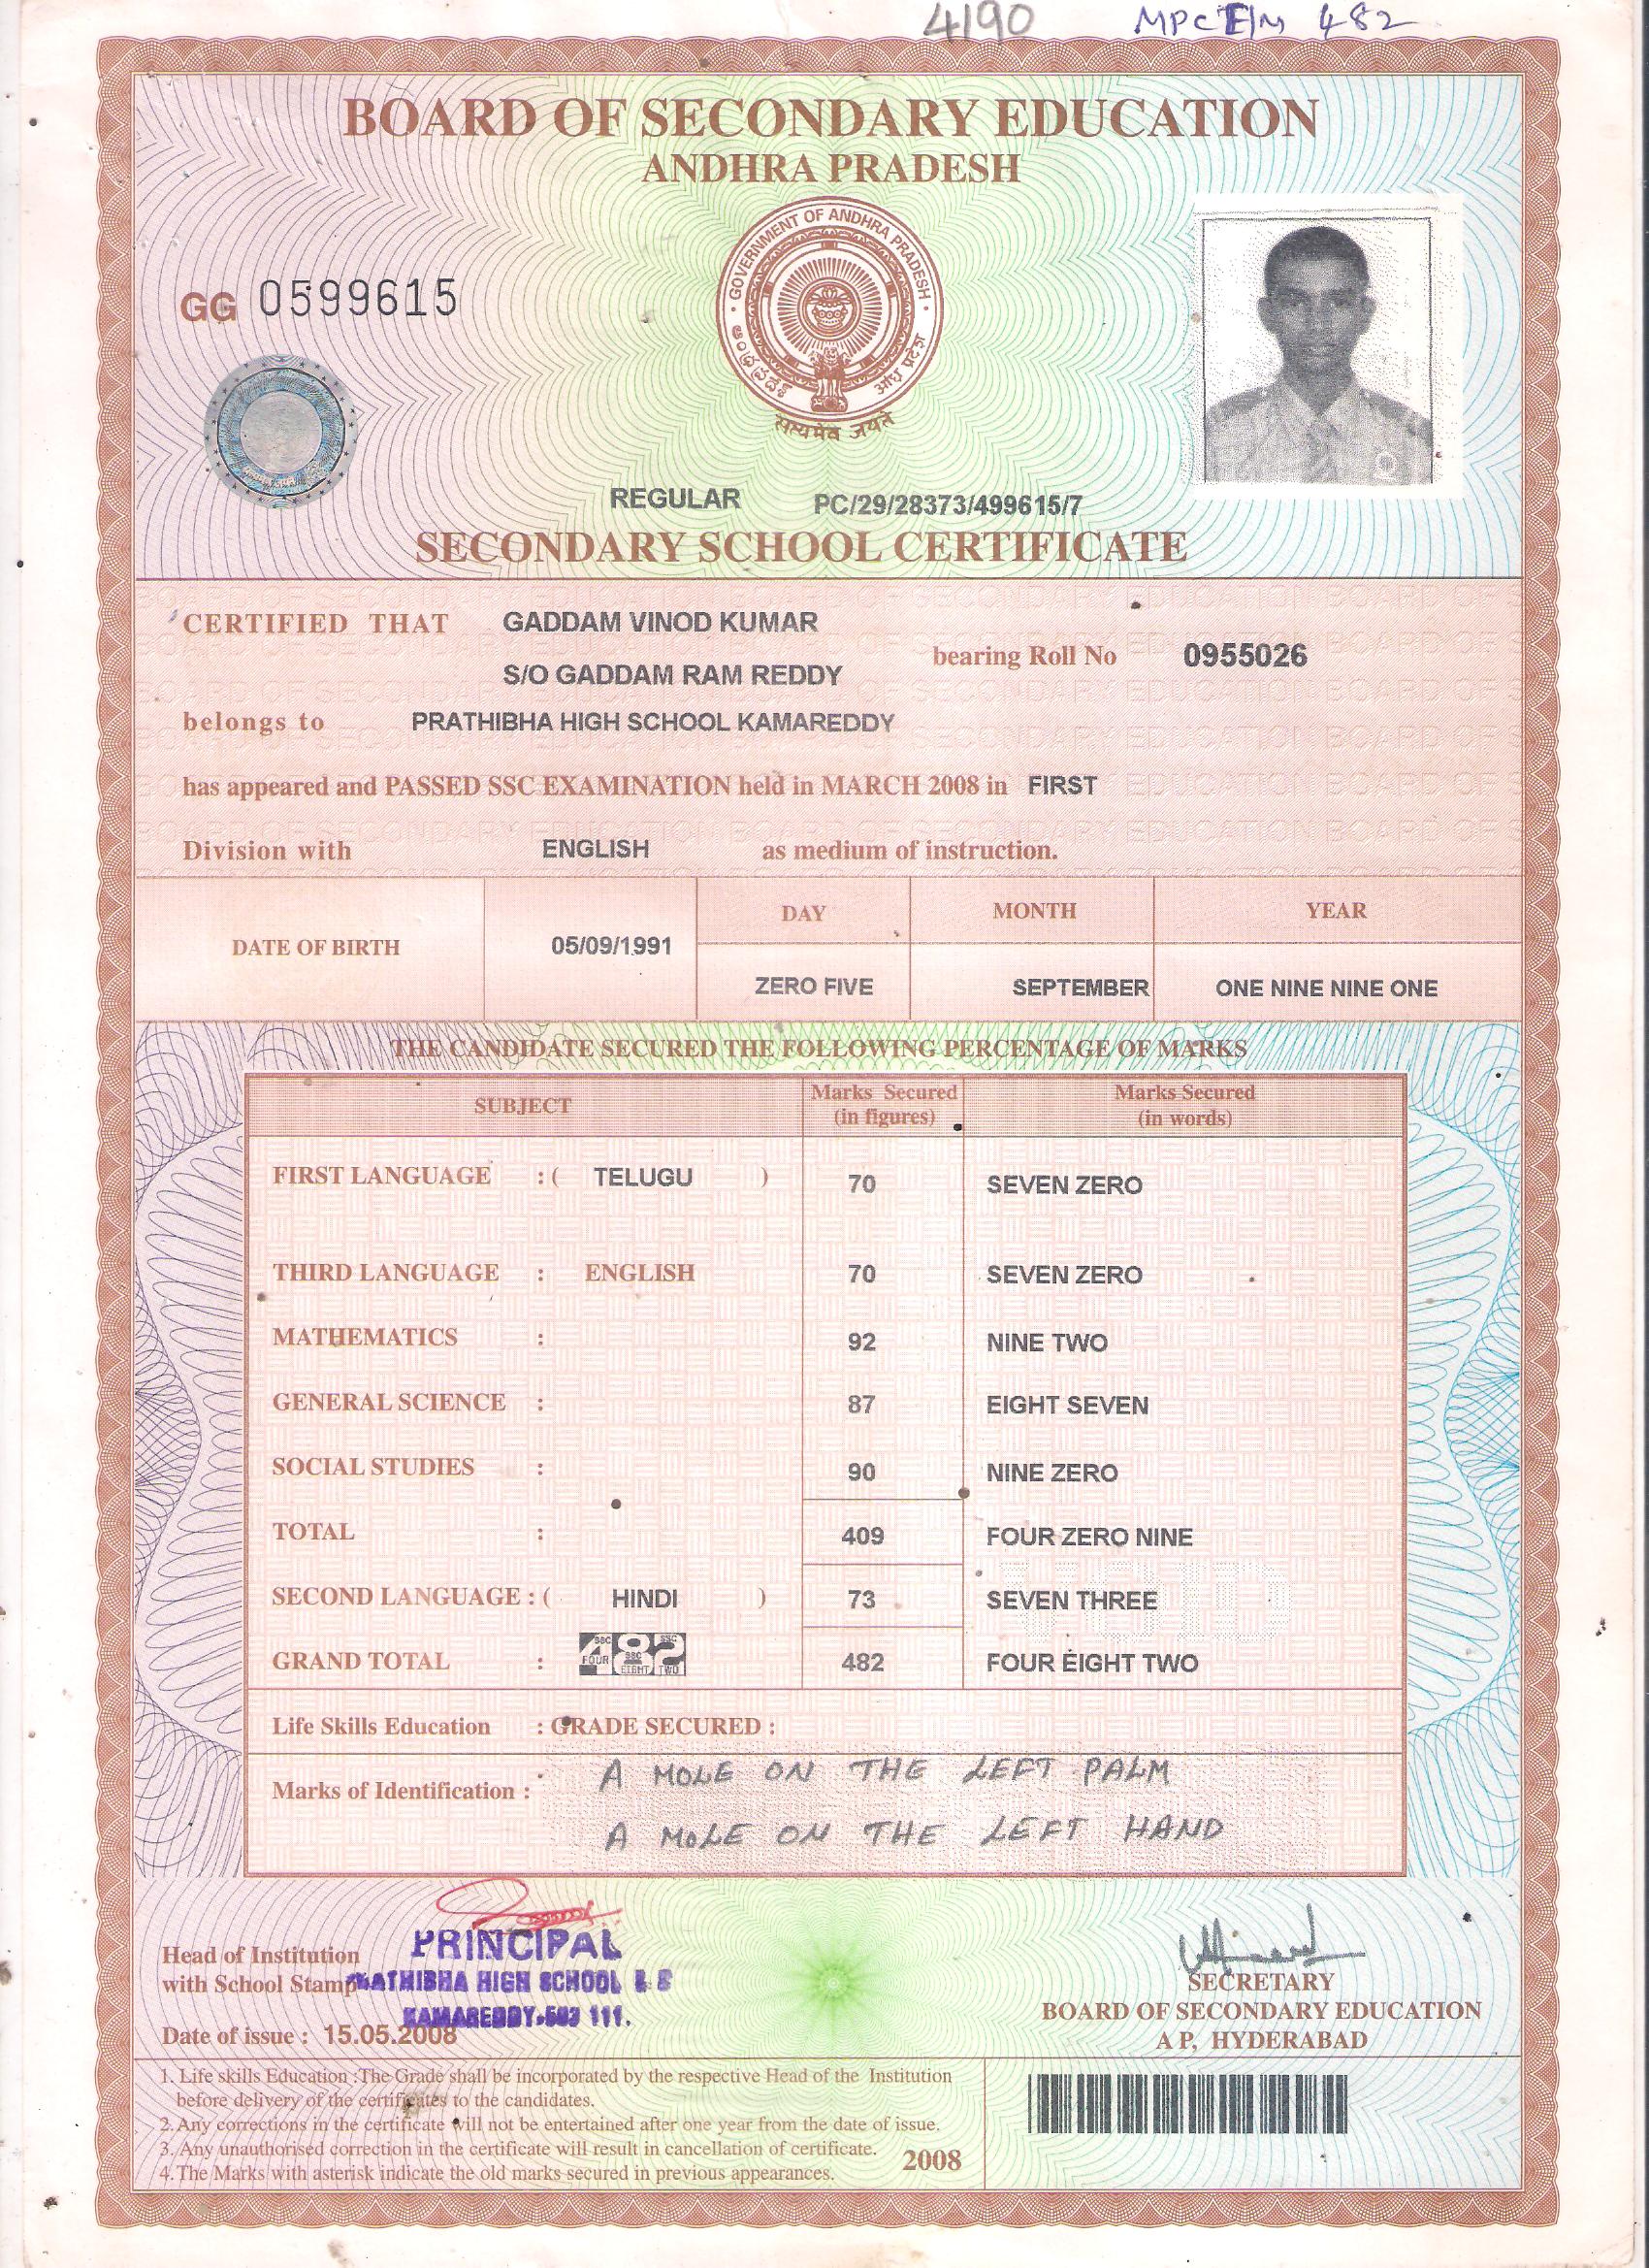 4190 MPC E/M 482
BOARD OF SECONDARY EDUCATION
ANDHRA PRADESH
GOVERNMENT OF ANDHRA PRADESH
ఆంధ్రప్రదేశ్
आंध्र प्रदेश
सत्यमेव जयते
GG 0599615
REGULAR PC/29/28373/499615/7
SECONDARY SCHOOL CERTIFICATE
CERTIFIED THAT GADDAM VINOD KUMAR
S/O GADDAM RAM REDDY bearing Roll No 0955026
belongs to PRATHIBHA HIGH SCHOOL KAMAREDDY
has appeared and PASSED SSC EXAMINATION held in MARCH 2008 in FIRST
Division with ENGLISH as medium of instruction.
DATE OF BIRTH 05/09/1991 DAY MONTH YEAR
ZERO FIVE SEPTEMBER ONE NINE NINE ONE
THE CANDIDATE SECURED THE FOLLOWING PERCENTAGE OF MARKS
SUBJECT Marks Secured (in figures) Marks Secured (in words)
FIRST LANGUAGE : ( TELUGU ) 70 SEVEN ZERO
THIRD LANGUAGE : ENGLISH 70 SEVEN ZERO
MATHEMATICS : 92 NINE TWO
GENERAL SCIENCE : 87 EIGHT SEVEN
SOCIAL STUDIES : 90 NINE ZERO
TOTAL : 409 FOUR ZERO NINE
SECOND LANGUAGE : ( HINDI ) 73 SEVEN THREE
GRAND TOTAL : 482 482 FOUR EIGHT TWO
Life Skills Education : GRADE SECURED :
Marks of Identification : A MOLE ON THE LEFT PALM
A MOLE ON THE LEFT HAND
PRINCIPAL
Head of Institution
with School Stamp HIGH SCHOOL
KAMAREDDY-503 111.
Date of issue : 15.05.2008
SECRETARY
BOARD OF SECONDARY EDUCATION
A P, HYDERABAD
1. Life skills Education :The Grade shall be incorporated by the respective Head of the Institution
before delivery of the certificates to the candidates.
2. Any corrections in the certificate will not be entertained after one year from the date of issue.
3. Any unauthorised correction in the certificate will result in cancellation of certificate.
4. The Marks with asterisk indicate the old marks secured in previous appearances.
2008